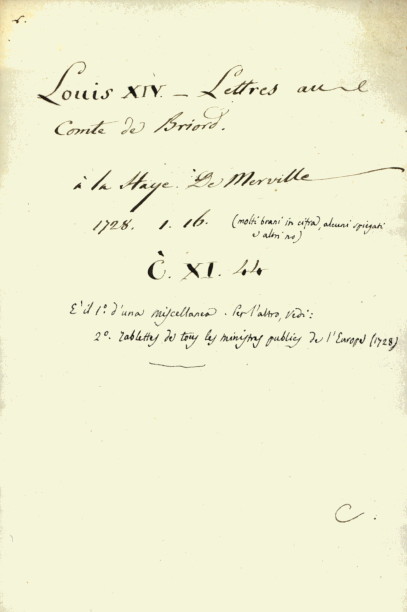 Louis XIV. — Lettres au
Comte de Briord.
à la Haye. De Merville
1728. 1. 16. (molti brani in cifra, alcuni spiegati
e altri no)
C. XI. 44
E' il 1º. d'una miscellanea. Per l'altro, vedi:
2º. Tablettes de tous les ministres publics de l'Europe (1728)
C.